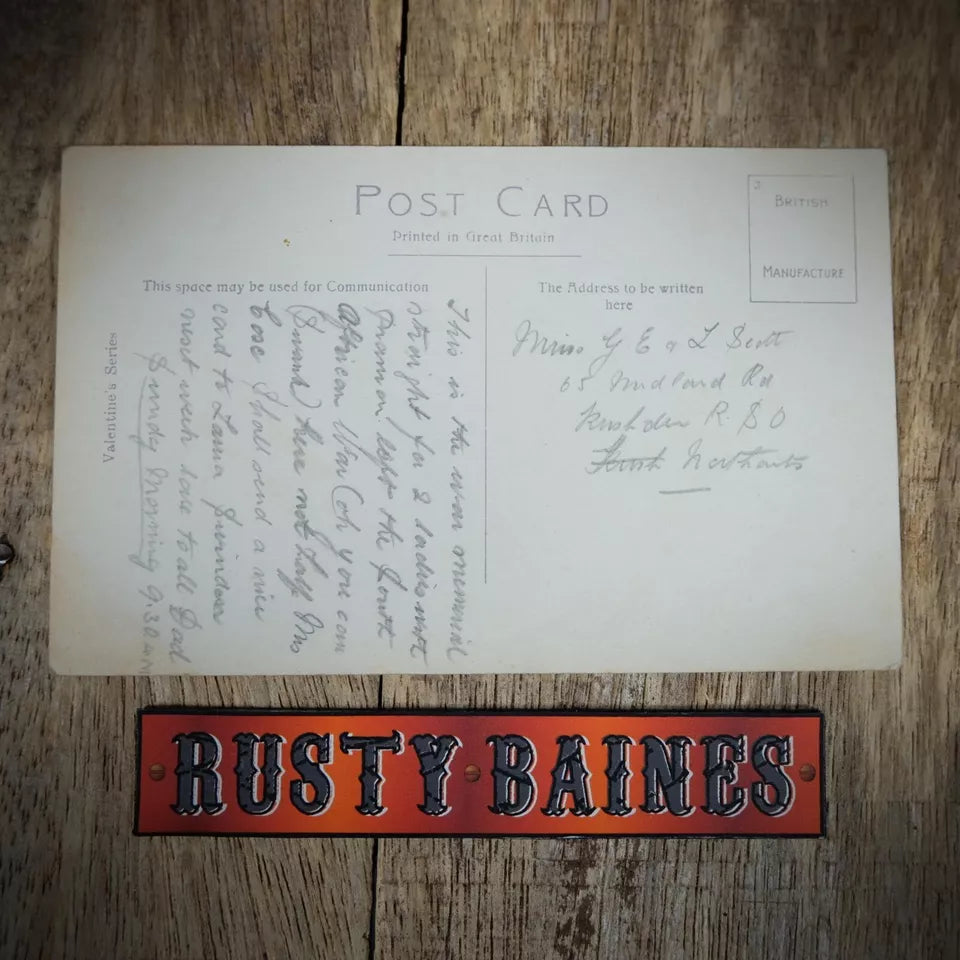 POST CARD
Printed in Great Britain
BRITISH
MANUFACTURE
This space may be used for Communication
The Address to be written
here
Valentine's Series
This is the war memorial
straight for 2 ladies not
left the South
African War Coh you can
here not half Mrs
Shall send a nice
card to
next week love to all Dad
Sunday Morning 9.30 AM
Miss G E & L Scott
65 Midland Rd
Rushden R. S O
Northants
RUSTY BAINES